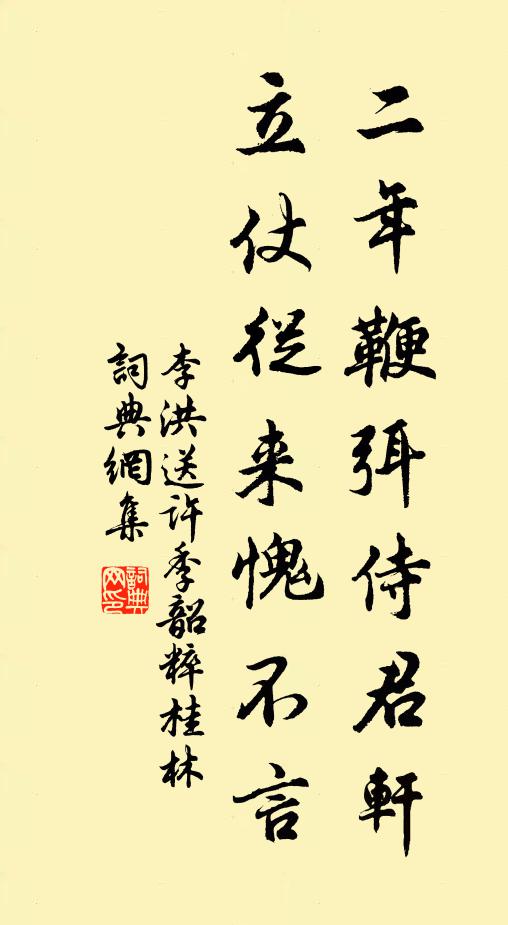 二年鞭弭侍君軒
立仗從来愧不言
李洪送许季韶粹桂林
詞典網集
詞典
网印